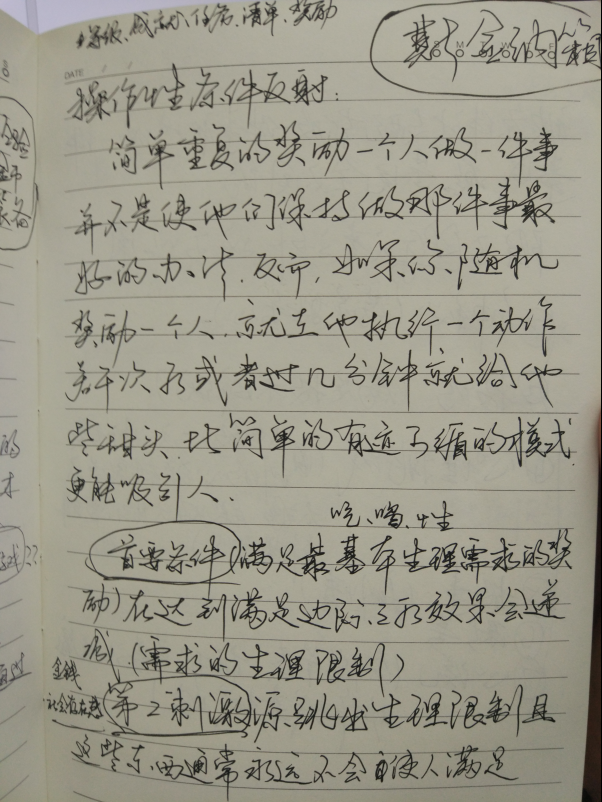 等级、成就、任务、清单、奖励
DATE
操作性条件反射:
简单重复的奖励一个人做一件事
并不是使他们保持做那件事最
好的办法,反而,如果你随机
奖励一个人,就在他执行一个动作
若干次后或者过几分钟就给他
些甜头,比简单的有迹可循的模式
更能吸引人.
吃、喝、性
首要条件(满足最基本生理需求的奖
励)在达到满足边际之后效果会递
减(需求的生理限制)
金钱
社会存在感
第2刺激源 跳出生理限制且
这些东西通常永远不会使人满足